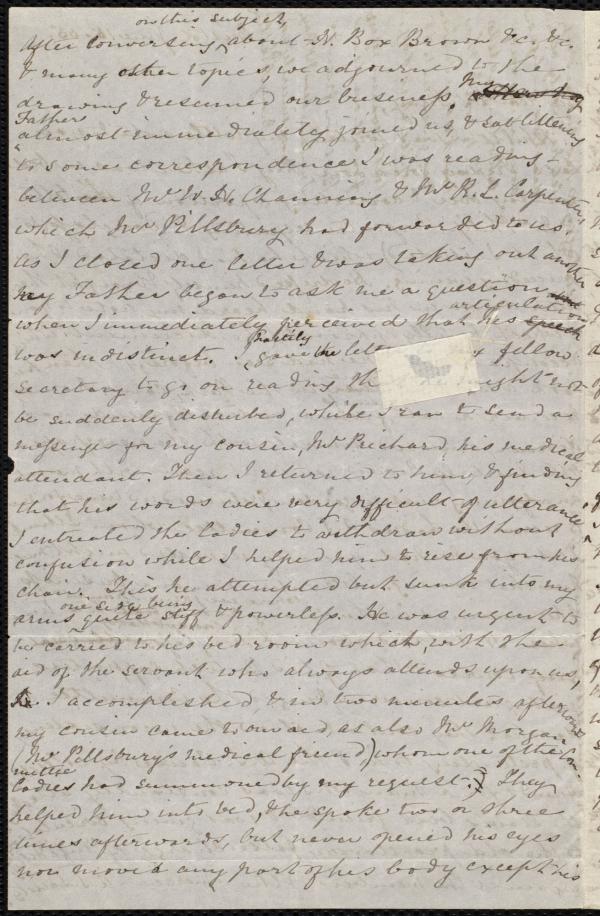 on this subject,
After conversing, about H. Box Brown &c. &c.
& many other topics, we adjourned to the
drawing & resumed our business. My
Father
almost immediately joined us, & sat listening
to some correspondence I was reading -
between Mr W. H. Channing & Mr R. L. Carpenter,
which Mr Pillsbury had forwarded to us.
As I closed one letter & was taking out another
my Father began to ask me a question
articulation
when I immediately perceived that his speech
was indistinct. I hastily gave the fellow
Secretary to go on reading might not
be suddenly disturbed, while I ran to send a
message for my cousin, Mr Prichard, his medical
attendant. Then I returned to him, & finding
that his words were very difficult of utterance
I entreated the ladies to withdraw without
confusion while I helped him to rise from his
chair. This he attempted but sunk into my
one side being
arms quite stiff & powerless. He was urgent to
be carried to his bed room which, with the
aid of the servant who always attends upon us,
I accomplished & in two minutes afterwards
my cousin came to our aid, as also Mr Morgan
(Mr Pillsbury's medical friend) whom one of the Com-
mittee
ladies had summoned by my request. They
helped him into bed, & he spoke two or three
times afterwards, but never opened his eyes
nor moved any part of his body except his